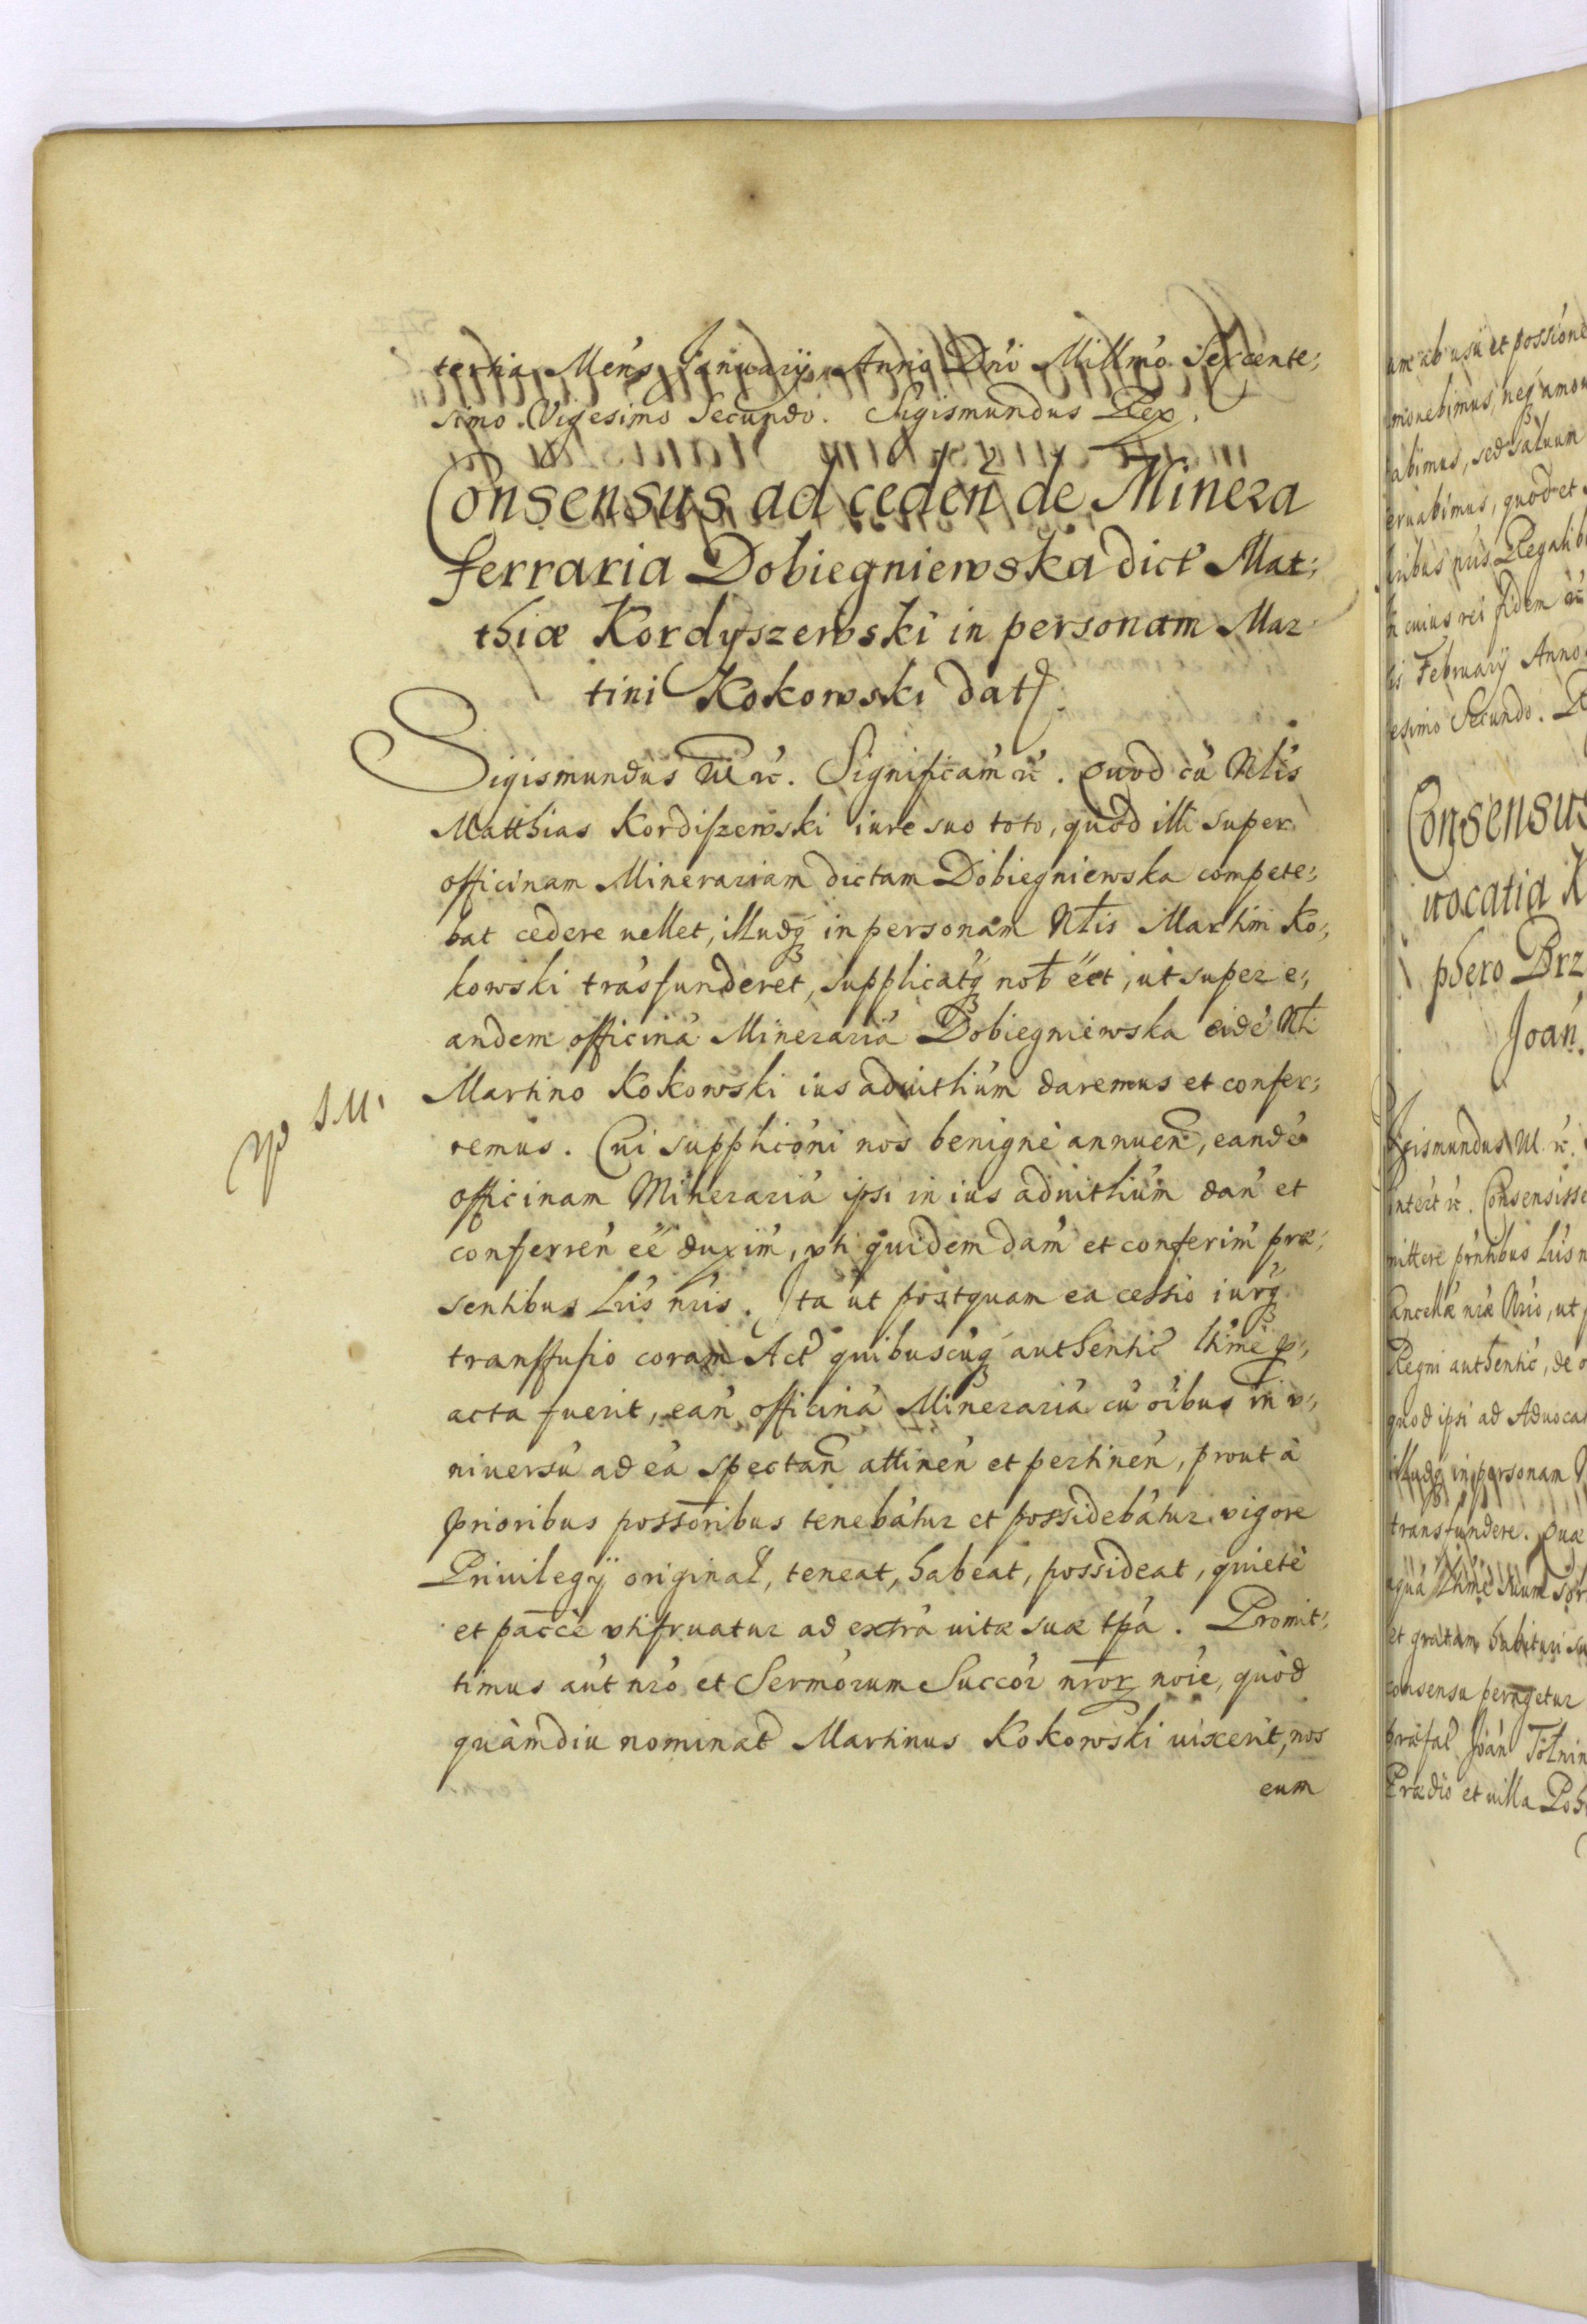 tertia Mens Januarij Anno Dni Millmo Sexcente;
simo Vigesimo Secundo. Sigismundus Rex.
Consensus ad ceden de Minera
ferraria Dobiegniewska dict Mat;
thiæ Kordyszewski in personam Mar
tini Kokowski dat.
Sigismundus III rc. Significam rc. Quod cu Nlis
Matthias Kordiszewski iure suo toto, quod illi super
officinam Minerariam dictam Dobiegniewska compete;
bat cedere uellet, illudq in personam Nlis Martini Ko;
kowski trasfunderet, supplicatq nob eet, ut super e;
andem officina Mineraria Dobiegniewska eide Nli
Martino Kokowski ius aduitlium daremus et confer;
remus. Cui suppliconi nos benigne annuen, eande
officinam Mineraria ipsi in ius aduitlium dan et
conferren ee duxim, vti quidem dam et conferim præ;
sentibus Lris nris. Ita ut postquam ea cessio iurq
transfusio coram Act quibuscuq authentic ltime p;
acta fuerit, ean officina Mineraria cu oibus in v;
niuersu ad ea spectan attinen et pertinen, prout à
prioribus possoribus tenebatur et possidebatur vigore
Priuilegij original, teneat, habeat, possideat, quietè
et pacce vtifruatur ad extra uitæ suæ tpa. Promit;
timus aut nro et Sermorum Succor nror noie, quòd
quàmdiu nominat Martinus Kokowski uixerit, nos
eum
am ab usu et possione
monebimus, neq amou
abimus, sed saluum
eruabimus, quod et
ribus nris Regalib
n cuius rei fidem rc
is February Anno
esimo Secundo.
Consensus
uocatia
phero Brz
Joan.
Sigismundus III rc.
rc. Consensisse
mittere pntibus Lris n
Cancellæ nræ Nrio, ut
Regni authentic, de
quod ipsi ad Aduoca
illudq in personam
transfundere. Quæ
et gratam habituri
consensu peragetur
præfat Joan
Prædio et uilla